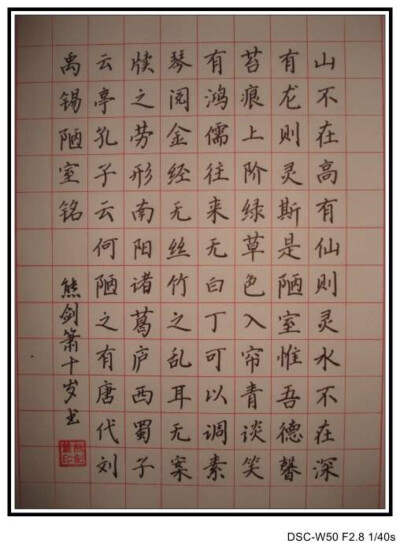 山不在高有仙则灵水不在深
有龙则灵斯是陋室惟吾德馨
苔痕上阶绿草色入帘青谈笑
有鸿儒往来无白丁可以调素
琴阅金经无丝竹之乱耳无案
牍之劳形南阳诸葛庐西蜀子
云亭孔子云何陋之有唐代刘
禹锡陋室铭 熊剑箫十岁书
DSC-W50 F2.8 1/40s